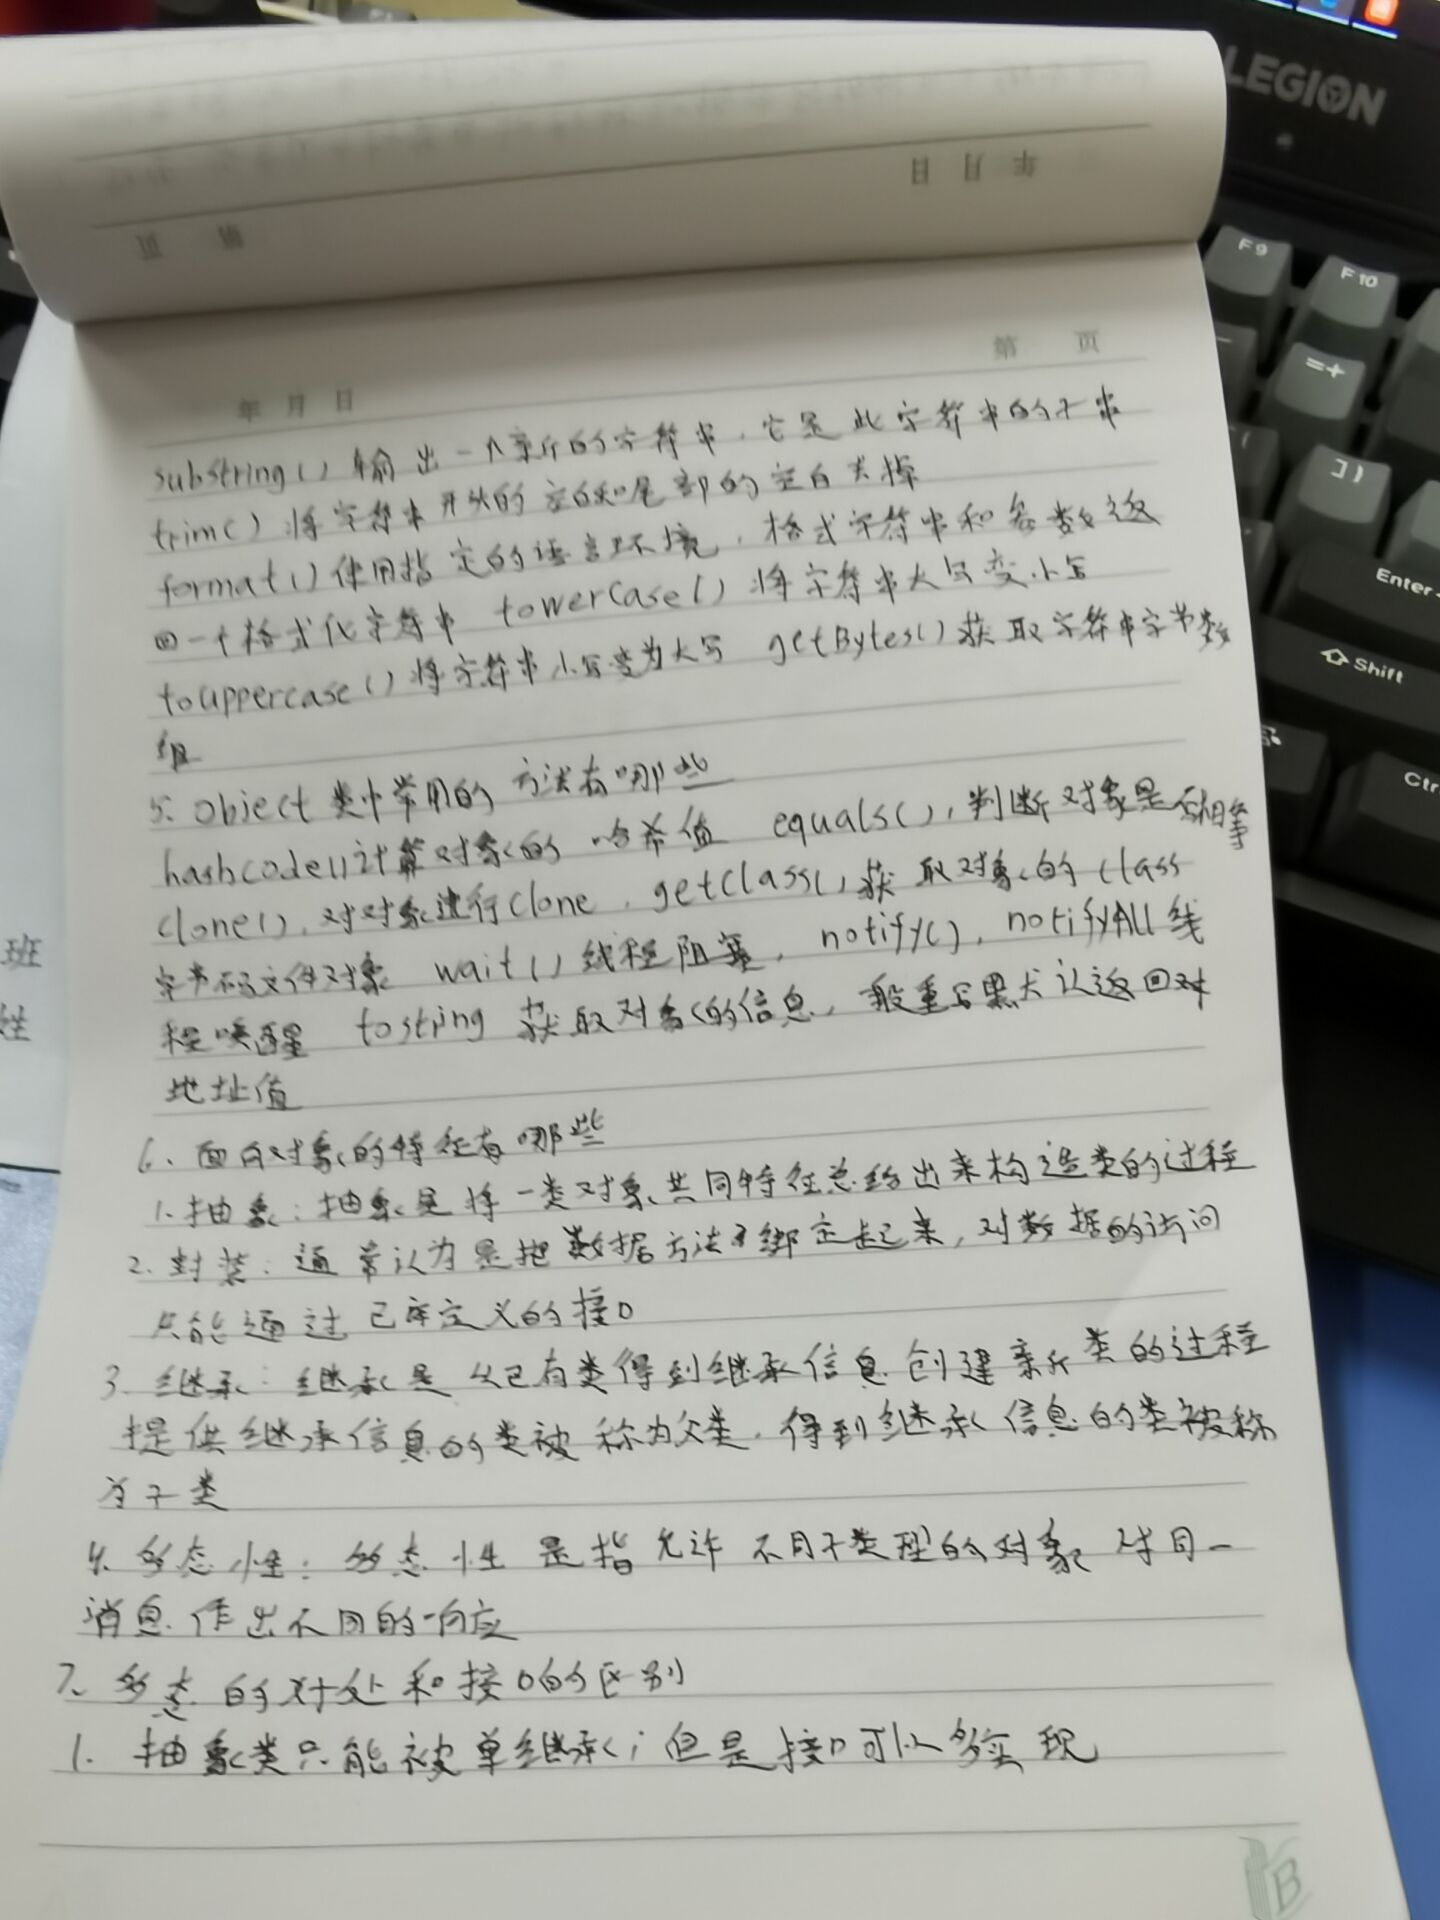 LEGION
F9
F10
=+
])
Enter
Shift
Ctr
年 月 日
第 页
班
姓
第 页
年 月 日
substring() 输出一个新的字符串，它是此字符串的子串
trim() 将字符串开头的空白和尾部的空白去掉
format() 使用指定的语言环境，格式字符串和参数返
回一个格式化字符串 towerCase() 将字符串大写变小写
touppercase() 将字符串小写变为大写 getBytes() 获取字符串字节数
组
5. Object 类中常用的方法有哪些
hashcode() 计算对象的哈希值 equals(), 判断对象是否相等
clone(), 对对象进行clone, getClass() 获取对象的class
字节码文件对象 wait() 线程阻塞, notify(), notifyAll 线
程唤醒 tostring 获取对象的信息, 一般重写默认返回对
地址值
6. 面向对象的特征有哪些
1. 抽象: 抽象是将一类对象共同特征总结出来构造类的过程
2. 封装: 通常认为是把数据方法绑定起来, 对数据的访问
只能通过已定义的接口
3. 继承: 继承是从已有类得到继承信息创建新类的过程
提供继承信息的类被称为父类, 得到继承信息的类被称
为子类
4. 多态性: 多态性是指允许不同子类型的对象对同一
消息作出不同的响应
7. 多态的对处和接口的区别
1. 抽象类只能被单继承; 但是接口可以多实现
B